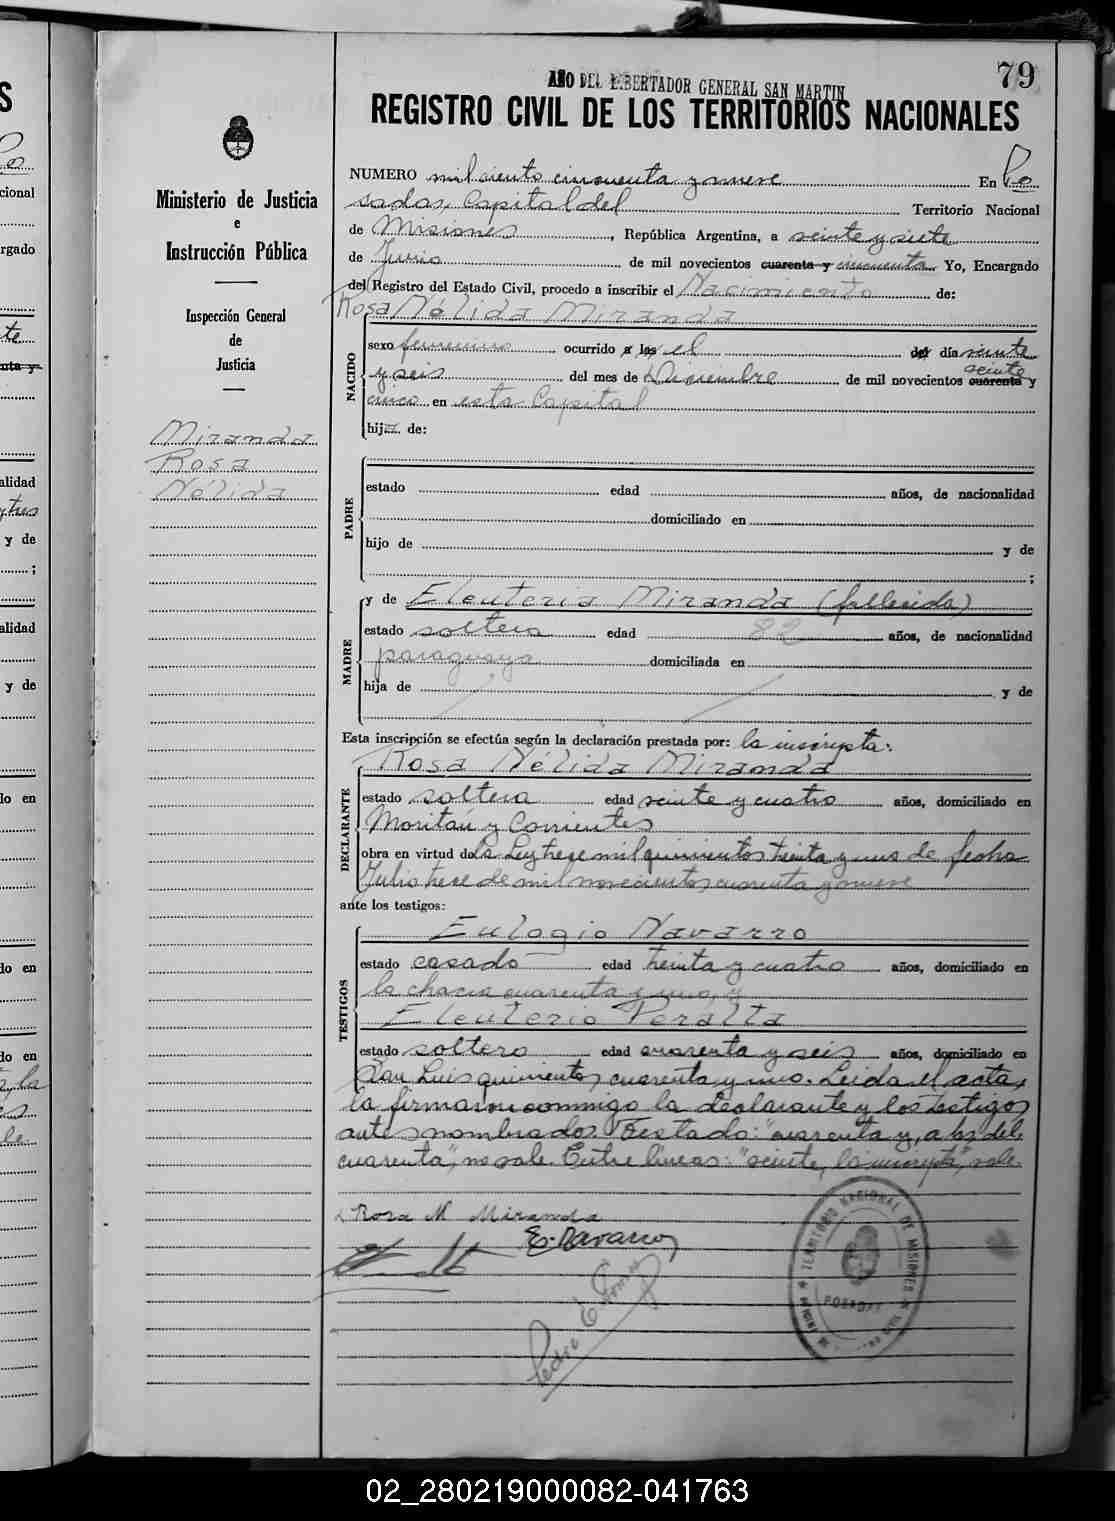 79
AÑO DEL LIBERTADOR GENERAL SAN MARTIN
REGISTRO CIVIL DE LOS TERRITORIOS NACIONALES
Ministerio de Justicia
e
Instrucción Pública
Inspección General
de
Justicia
Miranda
Rosa
Nélida
NUMERO mil ciento cincuenta y nueve En Po
sadas, Capital del Territorio Nacional
de Misiones, República Argentina, a veinte y siete
de Junio de mil novecientos cuarenta y cincuenta Yo, Encargado
del Registro del Estado Civil, procedo a inscribir el Nacimiento de:
Rosa Nélida Miranda
NACIDO
sexo femenino ocurrido a las el del día veinte
y seis del mes de Diciembre de mil novecientos cuarenta y veinte
cinco en esta Capital
hija de:
PADRE
estado edad años, de nacionalidad
domiciliado en
hijo de y de
;
MADRE
y de Eleuteria Miranda (fallecida)
estado soltera edad 82 años, de nacionalidad
paraguaya domiciliada en
hija de y de
Esta inscripción se efectúa según la declaración prestada por: la inscripta:
Rosa Nélida Miranda
DECLARANTE
estado soltera edad veinte y cuatro años, domiciliado en
y Corrientes
obra en virtud de la Ley trece mil quinientos treinta y uno de fecha
Julio trece de mil novecientos cuarenta y nueve
ante los testigos:
TESTIGOS
Eulogio Navarro
estado casado edad treinta y cuatro años, domiciliado en
la chacra cuarenta y uno, y
Eleuterio Peralta
estado soltero edad cuarenta y seis años, domiciliado en
San Luis quinientos cuarenta y uno. Leida el acta,
la firmaron conmigo la declarante y los testigos
antes nombrados. Testado: "cuarenta y, a las del,
cuarenta", no vale. Entre lineas: "veinte, la inscripta", vale.
Rosa N Miranda
E. Navarro
Pedro E.
TERRITORIO NACIONAL DE MISIONES
POSADAS
02_280219000082-041763